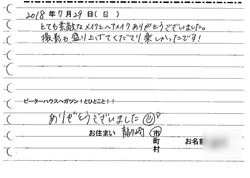 2018年7月29日(日)
とても素敵なメイクとヘアメイクありがとうございました。
撮影も盛り上げてくださり楽しかったです!
ピーターハウスへガツン!とひとこと!!
ありがとうございました
お住まい 龍ヶ崎 市
町
村
お名前